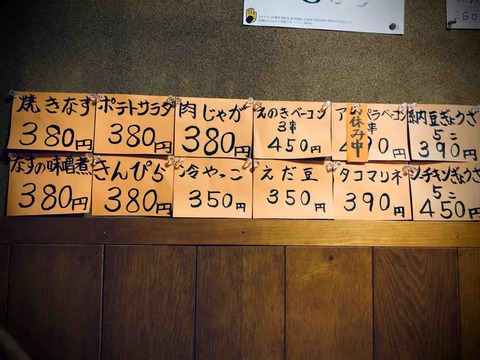 焼きなす
380円
ポテトサラダ
380円
肉じゃが
380円
えのきベーコン
3串
450円
お休み中
串
90円
納豆ぎょうざ
5こ
390円
なすの味噌煮
380円
きんぴら
380円
冷やっこ
350円
えだ豆
350円
タコマリネ
390円
シーチキンぎょうざ
5こ
450円